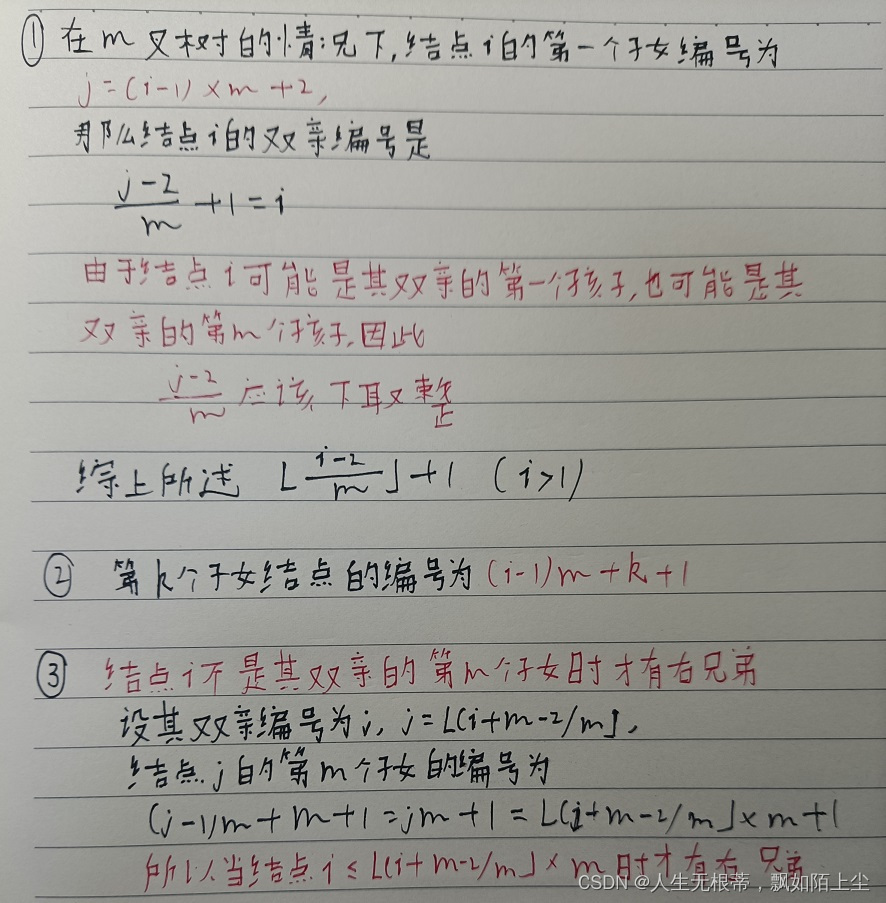 ① 在m叉树的情况下,结点i的第一个子女编号为
j=(i-1)×m+2,
那么结点i的双亲编号是
\frac{j-2}{m}+1=i
由于结点i可能是其双亲的第一个孩子,也可能是其
双亲的第m个孩子,因此
\frac{j-2}{m} 应该下取整
综上所述 ⌊\frac{i-2}{m}⌋+1 (i>1)
② 第k个子女结点的编号为(i-1)m+k+1
③ 结点i不是其双亲的第m个子女时才有右兄弟
设其双亲编号为j, j=⌊(i+m-2/m⌋,
结点j的第m个子女的编号为
(j-1)m+m+1=jm+1=⌊(i+m-2/m⌋×m+1
所以当结点i≤⌊(i+m-2/m⌋×m时才有右兄弟
CSDN @人生无根蒂,飘如陌上尘